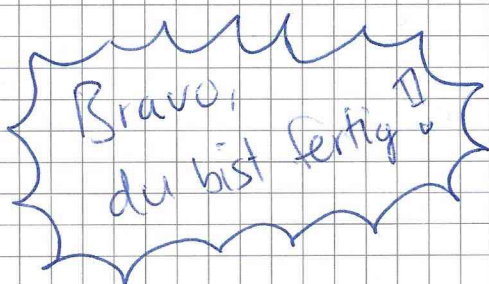 Bravo,
du bist fertig!